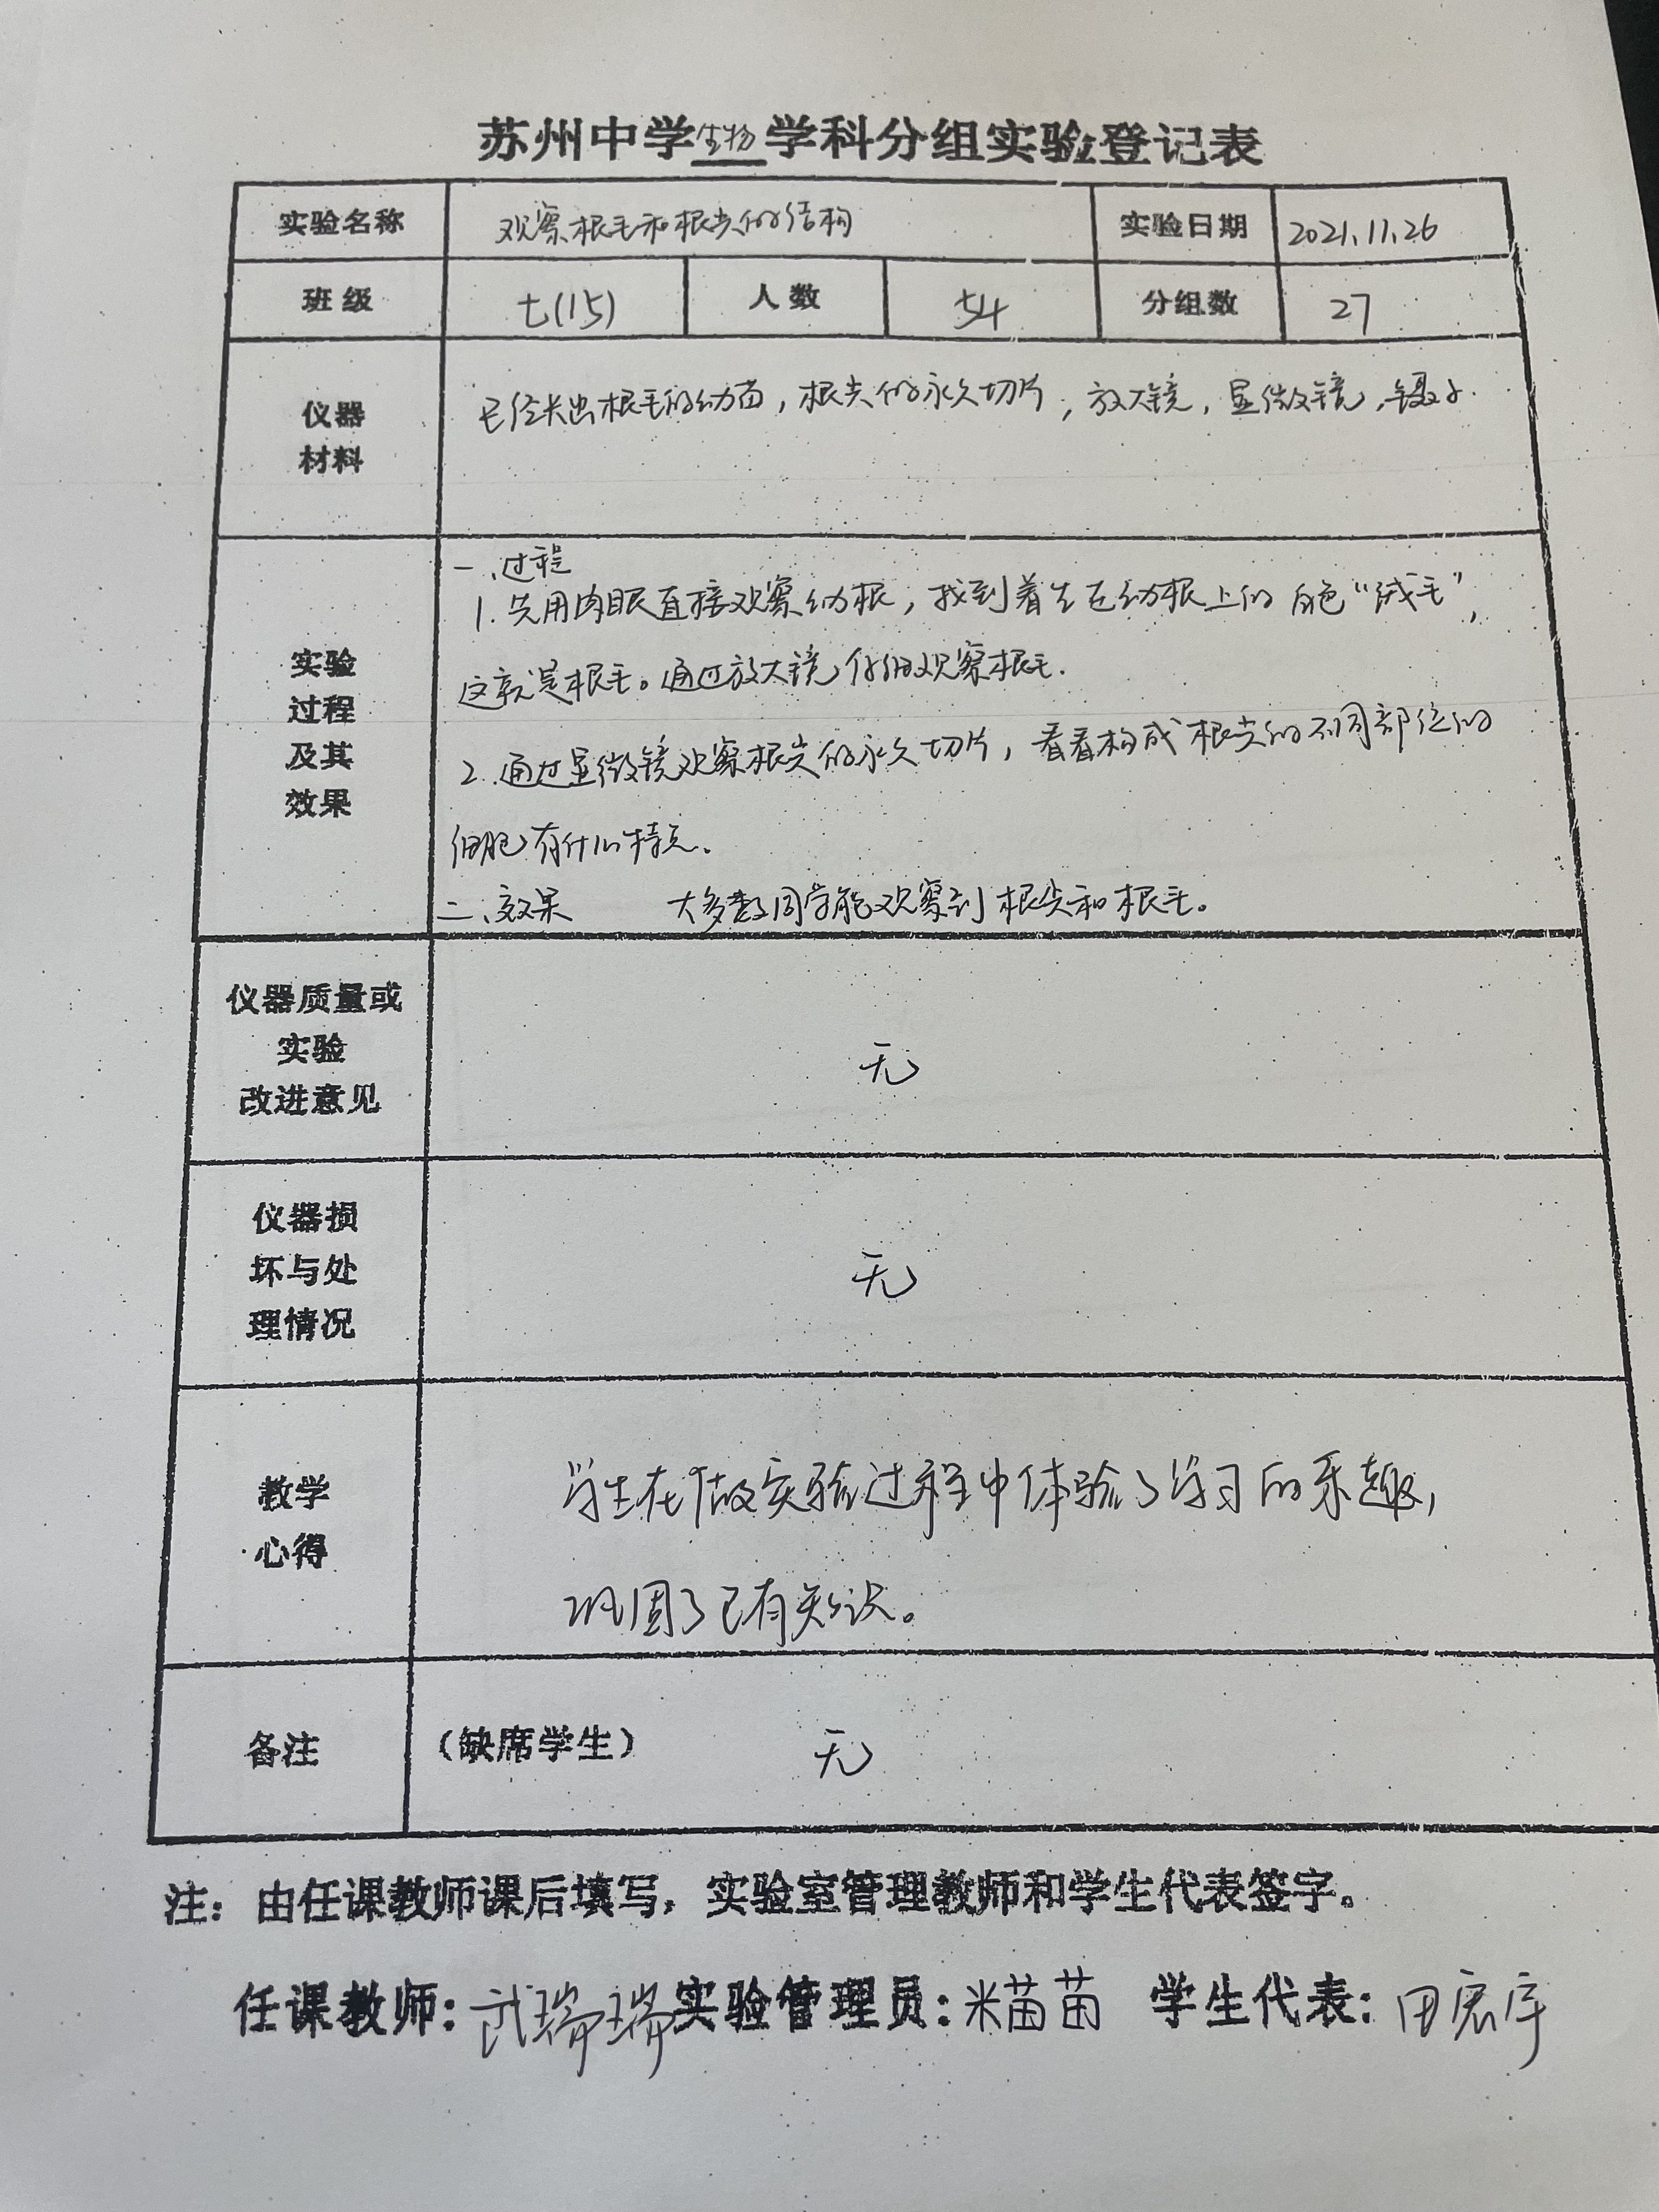 苏州中学生物学科分组实验登记表
实验名称 观察根毛和根尖的结构 实验日期 2021.11.26
班级 七(15) 人数 54 分组数 27
仪器
材料
已经长出根毛的幼苗，根尖的永久切片，放大镜，显微镜，镊子.
实验
过程
及其
效果
一、过程
1. 先用肉眼直接观察幼根，找到着生在幼根上的白色“绒毛”，
这就是根毛。通过放大镜仔细观察根毛.
2. 通过显微镜观察根尖的永久切片，看看构成根尖的不同部位的
细胞有什么特点。
二、效果 大多数同学能观察到根尖和根毛。
仪器质量或
实验
改进意见
无
仪器损
坏与处
理情况
无
教学
心得
学生在做实验过程中体验了学习的乐趣，
巩固了已有知识。
备注 （缺席学生） 无
注：由任课教师课后填写，实验室管理教师和学生代表签字。
任课教师：武瑞瑞 实验管理员：米苗苗 学生代表：田宏宇